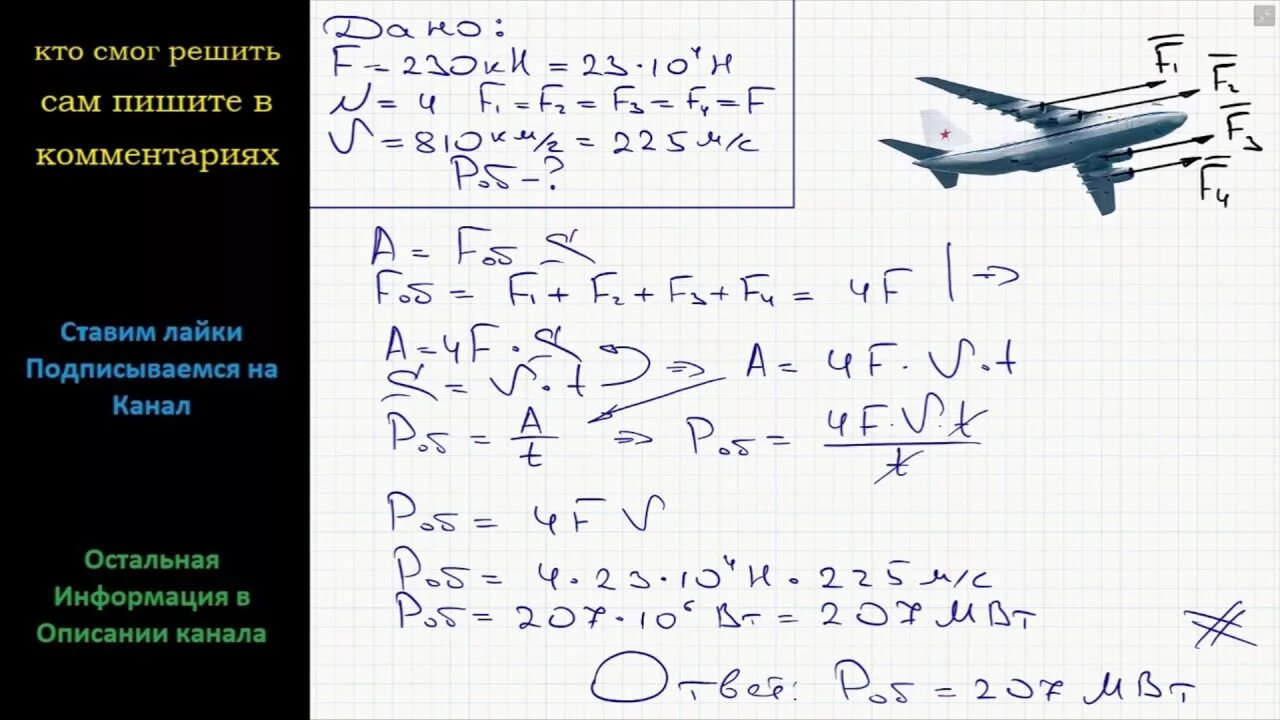 кто смог решить
сам пишите в
комментариях
Ставим лайки
Подписываемся на
Канал
Остальная
Информация в
Описании канала
Дано:
F = 230кН = 23·10⁴Н
N = 4 F₁ = F₂ = F₃ = F₄ = F
V = 810 км/ч = 225 м/с
Pоб - ?
F̅₁
F̅₂
F̅₃
F̅₄
A = Fоб S
Fоб = F₁ + F₂ + F₃ + F₄ = 4F | ⇒
A = 4F · S
S = V · t ⇒ A = 4F · V · t
Pоб = A/t ⇒ Pоб = 4F·V·t/t
Pоб = 4F V
Pоб = 4·23·10⁴Н · 225 м/с
Pоб = 207·10⁶ Вт = 207 МВт
Ответ: Pоб = 207 МВт